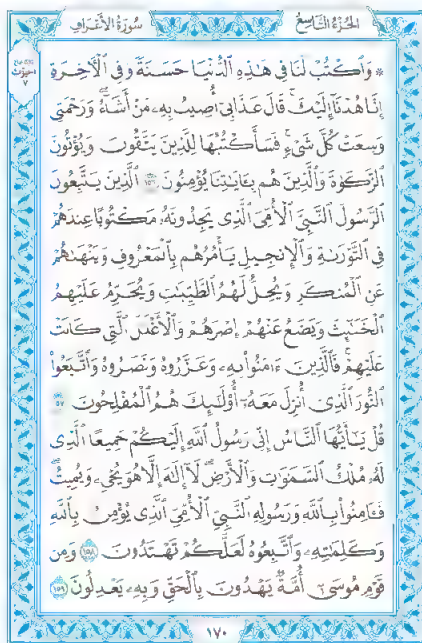 الجزء التاسع سورة الأعراف
۞ وَٱكۡتُبۡ لَنَا فِي هَٰذِهِ ٱلدُّنۡيَا حَسَنَةٗ وَفِي ٱلۡأٓخِرَةِ
إِنَّا هُدۡنَآ إِلَيۡكَۚ قَالَ عَذَابِيٓ أُصِيبُ بِهِۦ مَنۡ أَشَآءُۖ وَرَحۡمَتِي
وَسِعَتۡ كُلَّ شَيۡءٖۚ فَسَأَكۡتُبُهَا لِلَّذِينَ يَتَّقُونَ وَيُؤۡتُونَ
ٱلزَّكَوٰةَ وَٱلَّذِينَ هُم بِـَٔايَٰتِنَا يُؤۡمِنُونَ ١٥٦ ٱلَّذِينَ يَتَّبِعُونَ
ٱلرَّسُولَ ٱلنَّبِيَّ ٱلۡأُمِّيَّ ٱلَّذِي يَجِدُونَهُۥ مَكۡتُوبًا عِندَهُمۡ
فِي ٱلتَّوۡرَىٰةِ وَٱلۡإِنجِيلِ يَأۡمُرُهُم بِٱلۡمَعۡرُوفِ وَيَنۡهَىٰهُمۡ
عَنِ ٱلۡمُنكَرِ وَيُحِلُّ لَهُمُ ٱلطَّيِّبَٰتِ وَيُحَرِّمُ عَلَيۡهِمُ
ٱلۡخَبَٰٓئِثَ وَيَضَعُ عَنۡهُمۡ إِصۡرَهُمۡ وَٱلۡأَغۡلَٰلَ ٱلَّتِي كَانَتۡ
عَلَيۡهِمۡۚ فَٱلَّذِينَ ءَامَنُواْ بِهِۦ وَعَزَّرُوهُ وَنَصَرُوهُ وَٱتَّبَعُواْ
ٱلنُّورَ ٱلَّذِيٓ أُنزِلَ مَعَهُۥٓ أُوْلَٰٓئِكَ هُمُ ٱلۡمُفۡلِحُونَ ١٥٧
قُلۡ يَٰٓأَيُّهَا ٱلنَّاسُ إِنِّي رَسُولُ ٱللَّهِ إِلَيۡكُمۡ جَمِيعًا ٱلَّذِي
لَهُۥ مُلۡكُ ٱلسَّمَٰوَٰتِ وَٱلۡأَرۡضِۖ لَآ إِلَٰهَ إِلَّا هُوَ يُحۡيِۦ وَيُمِيتُۖ
فَـَٔامِنُواْ بِٱللَّهِ وَرَسُولِهِ ٱلنَّبِيِّ ٱلۡأُمِّيِّ ٱلَّذِي يُؤۡمِنُ بِٱللَّهِ
وَكَلِمَٰتِهِۦ وَٱتَّبِعُوهُ لَعَلَّكُمۡ تَهۡتَدُونَ ١٥٨ وَمِن
قَوۡمِ مُوسَىٰٓ أُمَّةٞ يَهۡدُونَ بِٱلۡحَقِّ وَبِهِۦ يَعۡدِلُونَ ١٥٩
١٧٠